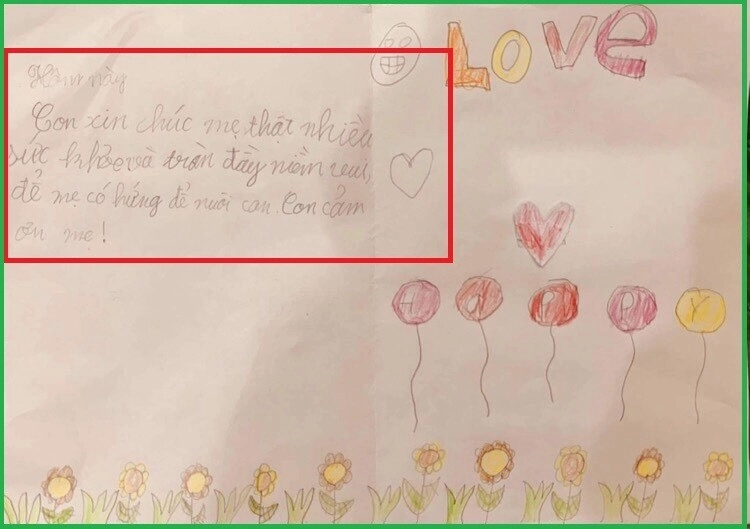 Love
Hôm nay
Con xin chúc mẹ thật nhiều
sức khỏe và tràn đầy niềm vui,
để mẹ có hứng để nuôi con. Con cảm
ơn mẹ!
HaPPY